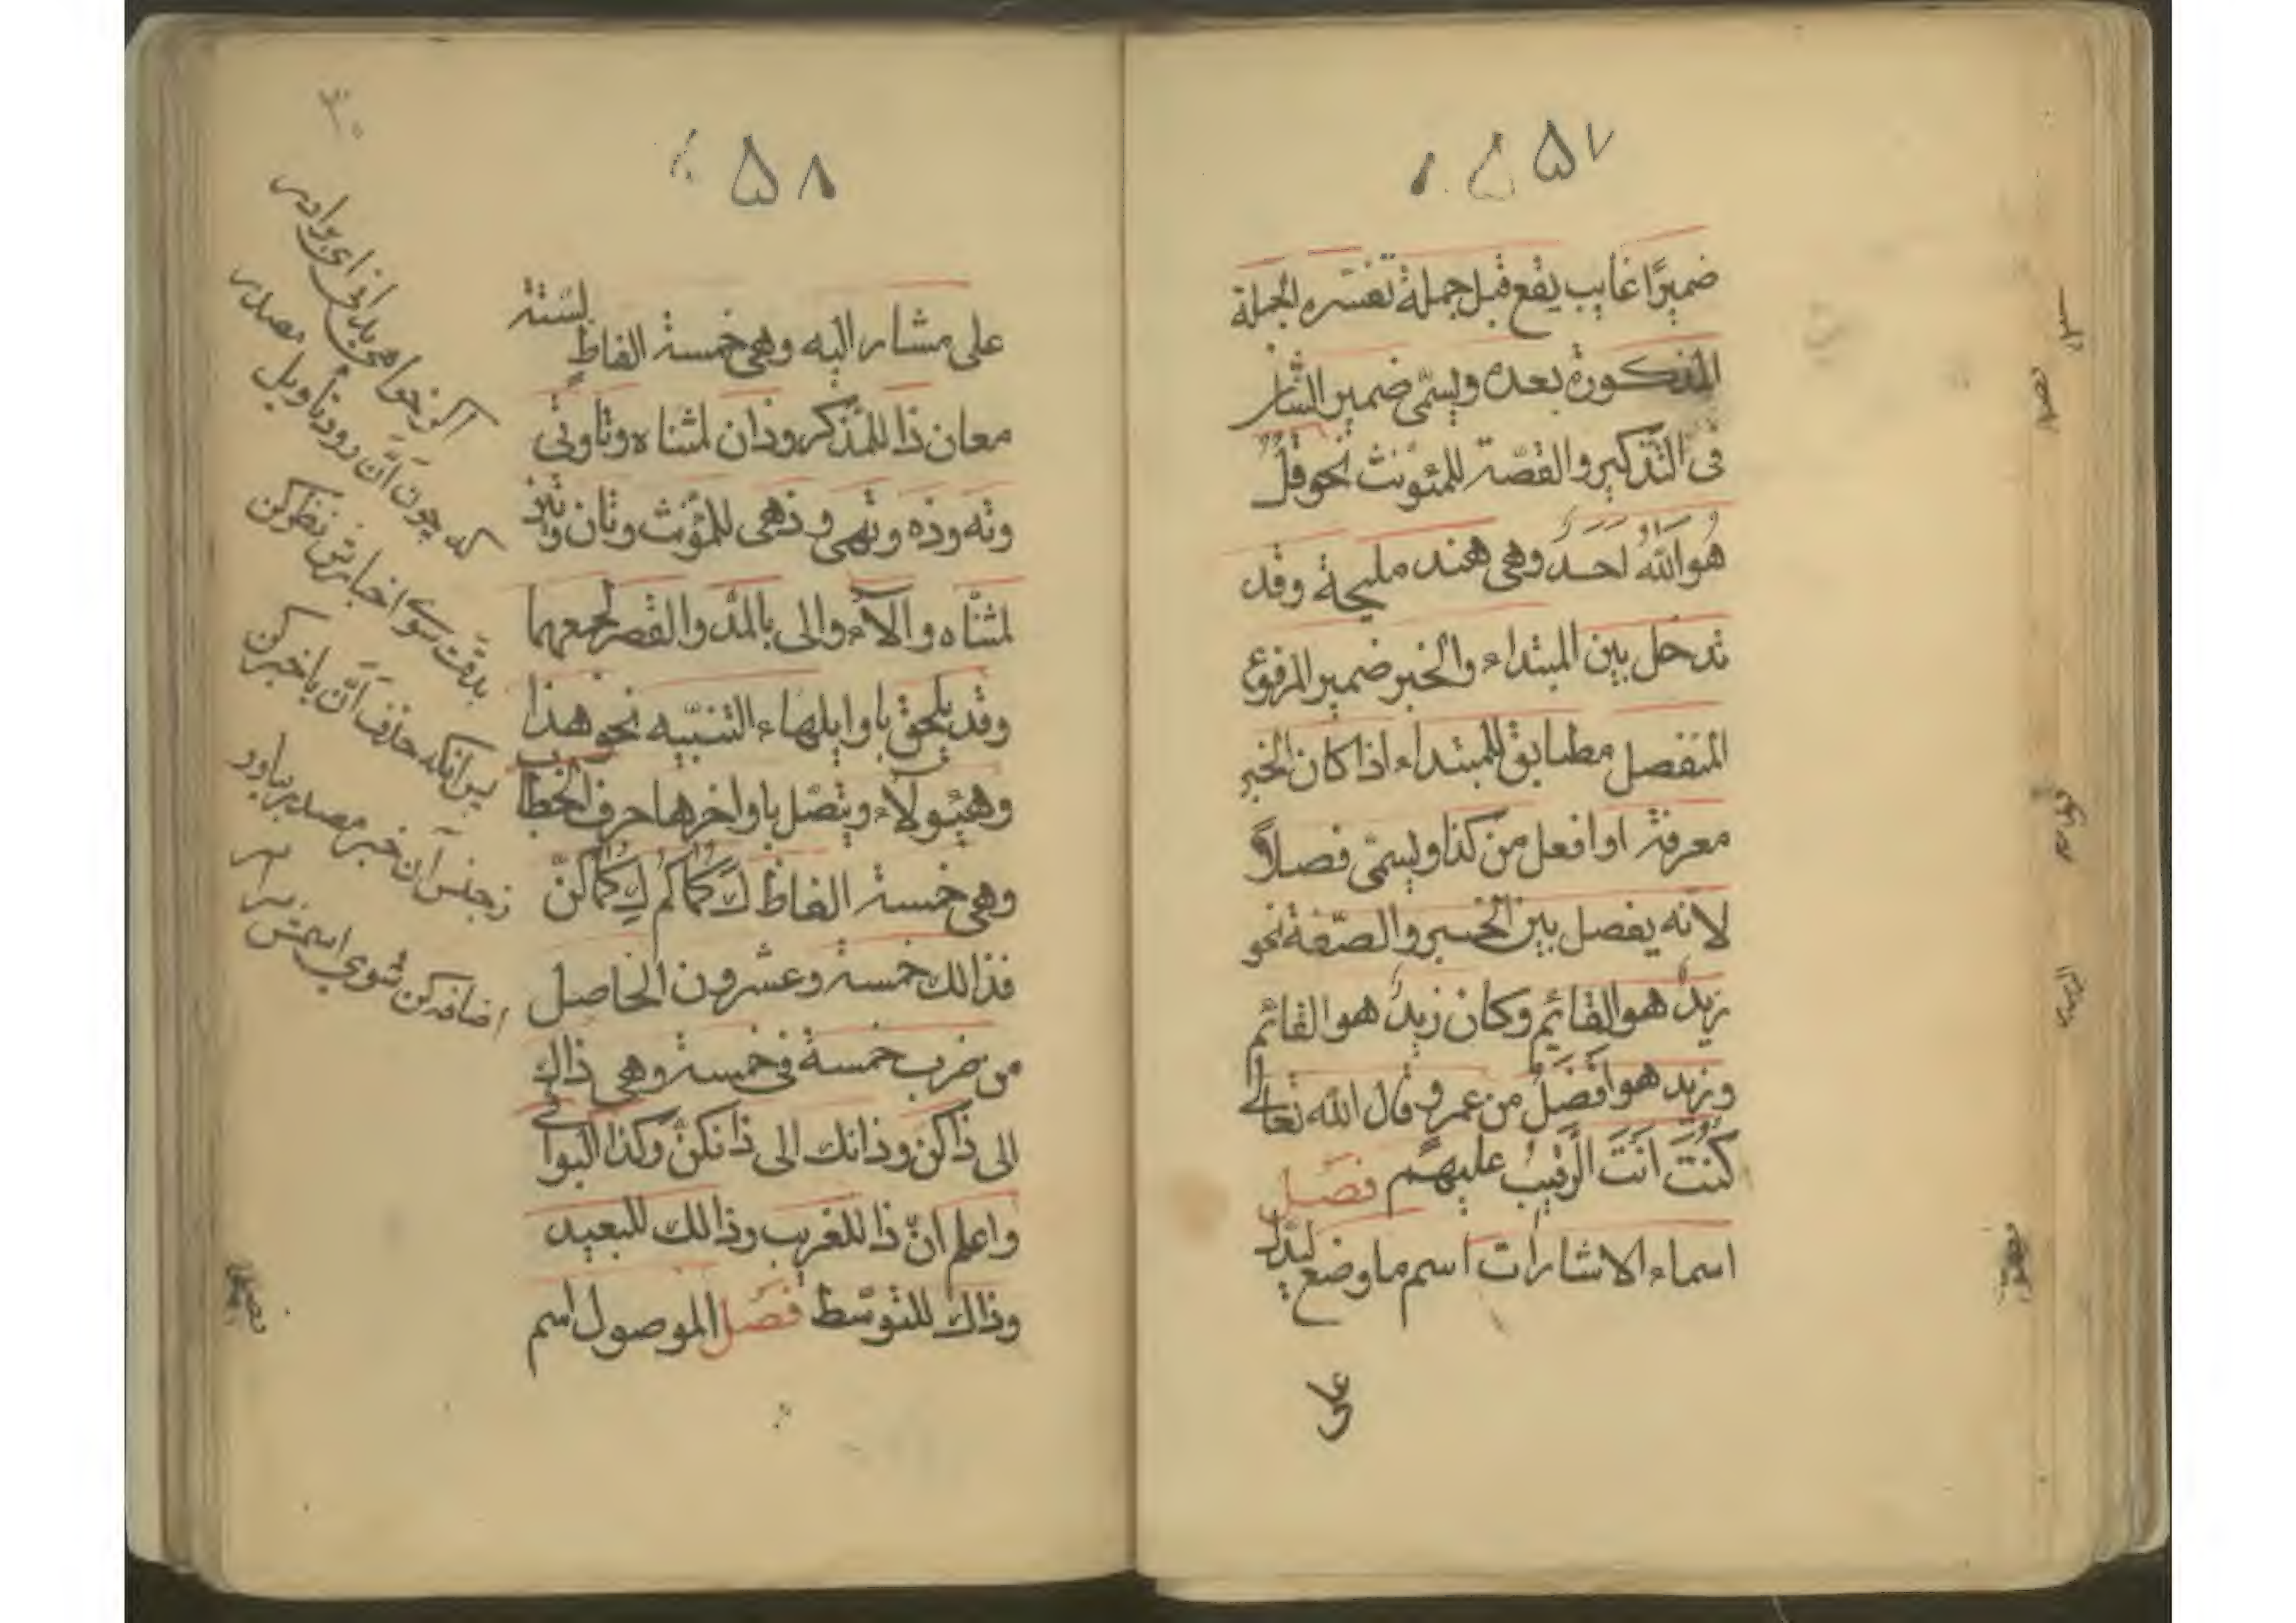 ۵۷
ضميرًا غايب يقع قبل جملة تفسّره الجملة
المذكورة بعده ويسمّى ضمير الشان
فى التّذكير والقصّة للمئونث نحو قُلْ
هُوَ اللّٰهُ اَحَدٌ وهى هند مليحة وقد
تدخل بين المبتداء والخبر ضمير المرفوع
المنفصل مطابق للمبتداء اذا كان الخبر
معرفة او افعل من كذا ويسمّى فصلاً
لانّه يفصل بين الخبر والصّفة نحو
زيدٌ هو القائم وكان زيدٌ هو القائم
وزيد هو اَفْضَلُ من عمرو قال اللّٰه تعالى
كُنْتَ اَنْتَ الرَّقيبُ عليهم فصل
اسماء الاشارات اسم ما وضع ليدّل
على
۳۰
۵۸
على مشار اليه وهى خمسة الفاظ لستّة
معان ذا للمذكر وذان لمثناه وتا وتى
وته وذه وتهى وذهى للمؤنث وتان وتين
لمثنّاه والآء والى بالمدّ والقصر لجمعهما
وقد يلحق باوايلهاء التنبيه نحو هذا
وهئولاء ويتصّل باواخرها حرف الخطاب
وهى خمسة الفاظ كَ كما كم كِ كما كنّ
فذالك خمسة وعشرون الحاصل
من ضرب خمسة فى خمسة وهى ذاك
الى ذاكن وذانك الى ذانكنّ وكذا البواقى
واعلم انّ ذا للقريب وذالك للبعيد
وذاك للتوسّط فصل الموصول اسم
اگر خواهى بدانى اى برادر
كه چون اَنَّ رود تاويل مصدر
بدقّت سوى اخبارش نظر كن
پس آنگه حذف اَنَّ با خبر كن
زجنس آن خبر مصدر بياور
اضافه كن سوى اسمش